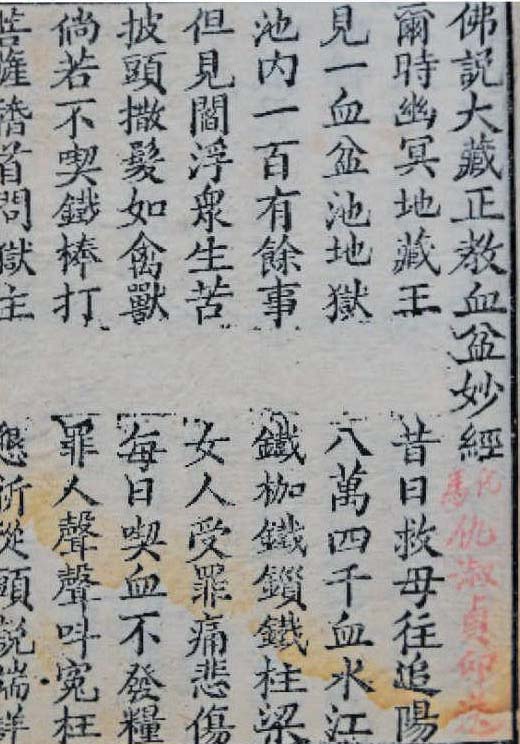 佛説大藏正教血盆妙經 仇淑貞印
爾時幽冥地藏王 昔日救母往追陽
見一血盆池地獄 八萬四千血水江
池内一百有餘事 鐵枷鐵鎖鐵柱梁
但見閻浮衆生苦 女人受罪痛悲傷
披頭撒髮如禽獸 每日喫血不發糧
倘若不喫鐵棒打 罪人聲聲呌寃枉
菩薩稽首問獄主 懇祈從頭説端詳